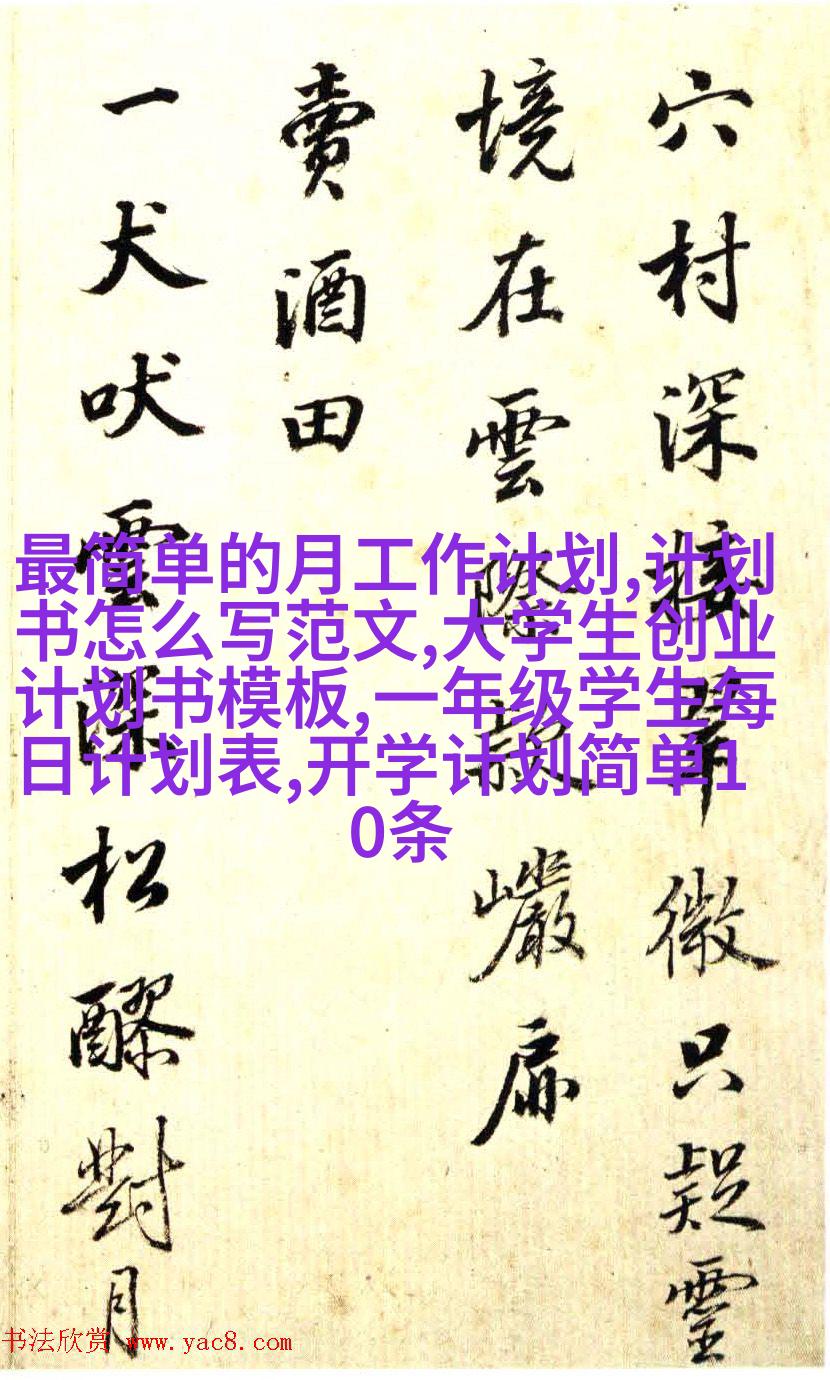 穴村深接翠微只疑靈
境在雲際設巖扉
賣酒田
一犬吠雲深松醪對月
最简单的月工作计划,计划
书怎么写范文,大学生创业
计划书模板,一年级学生每
日计划表,开学计划简单1
0条
书法欣赏 www.yac8.com